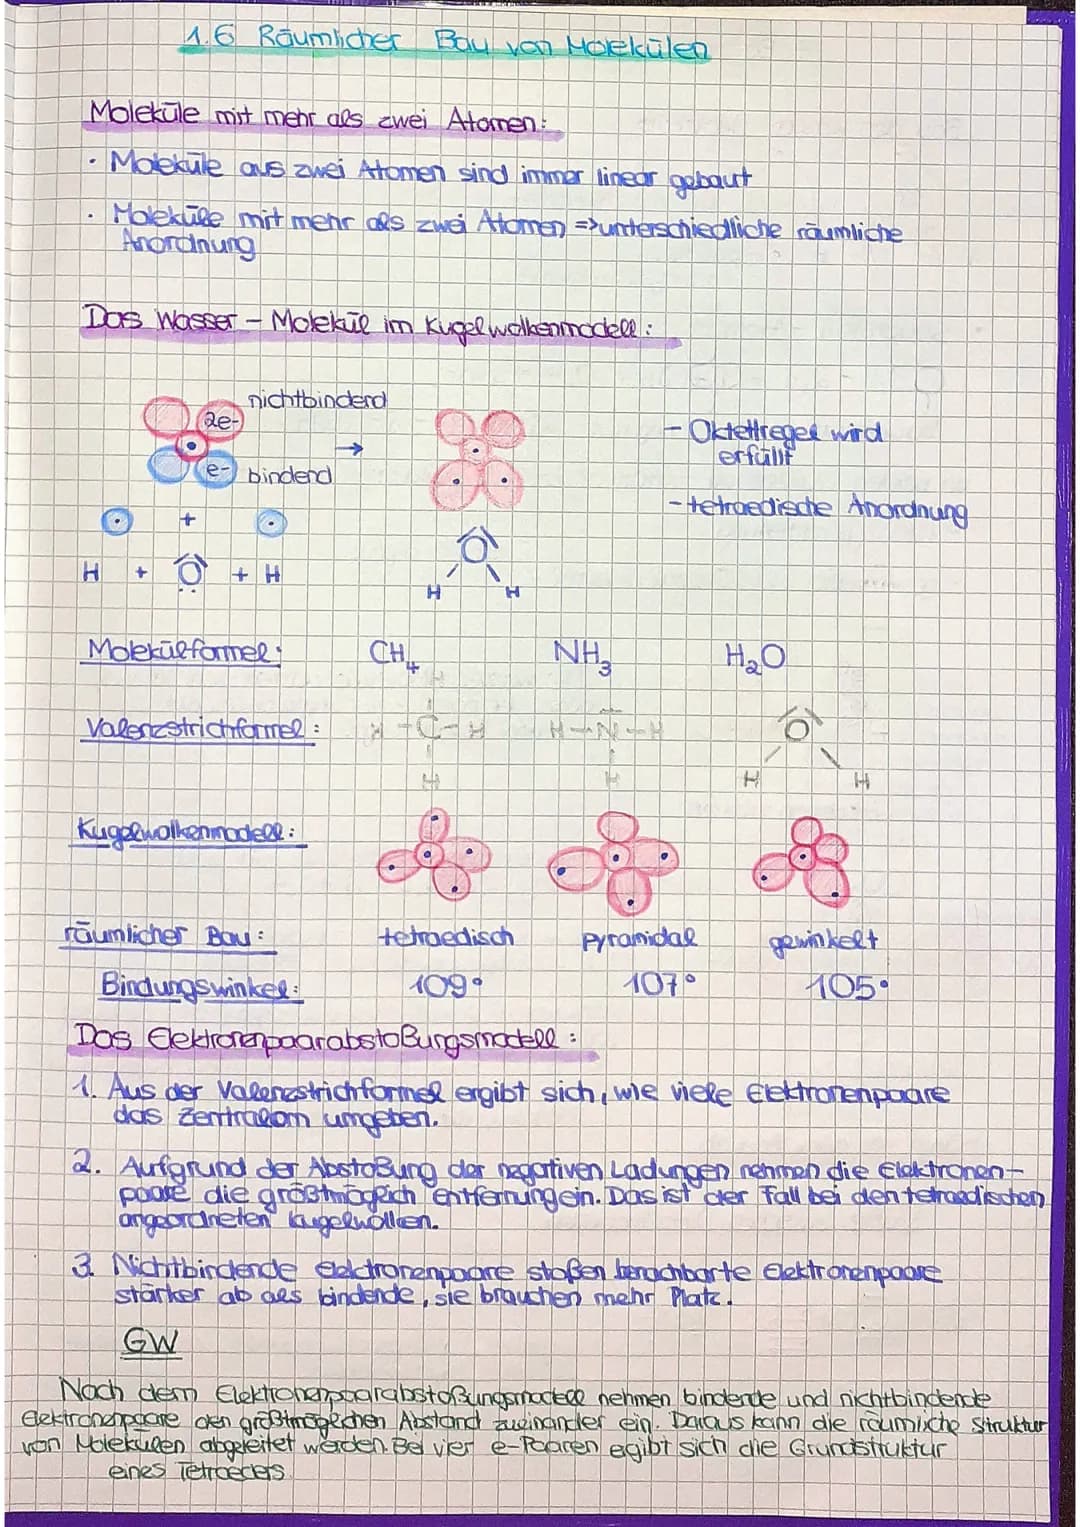 1.6 Räumlicher Bau von Molekülen
Moleküle mit mehr als zwei Atomen:
· Moleküle aus zwei Atomen sind immer linear gebaut
· Moleküle mit mehr als zwei Atomen => unterschiedliche räumliche
Anordnung
Das Wasser - Molekül im Kugelwolkenmodell:
nichtbindend
2e-
→
- Oktettregel wird
erfüllt
e- bindend
- tetraedische Anordnung
+
O
H + O + H
H H
Molekülformel: CH4 NH3 H2O
H
Valenzstrichformel: H-C-H H-N-H O
H H H H
Kugelwolkenmodell:
räumlicher Bau: tetraedisch pyramidal gewinkelt
Bindungswinkel: 109° 107° 105°
Das Elektronenpaarabstoßungsmodell:
1. Aus der Valenzstrichformel ergibt sich, wie viele Elektronenpaare
das Zentralom umgeben.
2. Aufgrund der Abstoßung der negativen Ladungen nehmen die Elektronen-
paare die größtmöglich entfernung ein. Das ist der Fall bei den tetraedischen
angeordneten kugelwolken.
3. Nichtbindende Elektronenpaare stoßen benachbarte Elektronenpaare
stärker ab als bindende, sie brauchen mehr Platz.
GW
Nach dem Elektronenpaarabstoßungsmodell nehmen bindende und nichtbindende
Elektronenpaare den größtmöglichen Abstand zueinander ein. Daraus kann die räumliche Struktur
von Molekülen abgeleitet werden. Bei vier e-Paaren egibt sich die Grundstruktur
eines Tetraeders